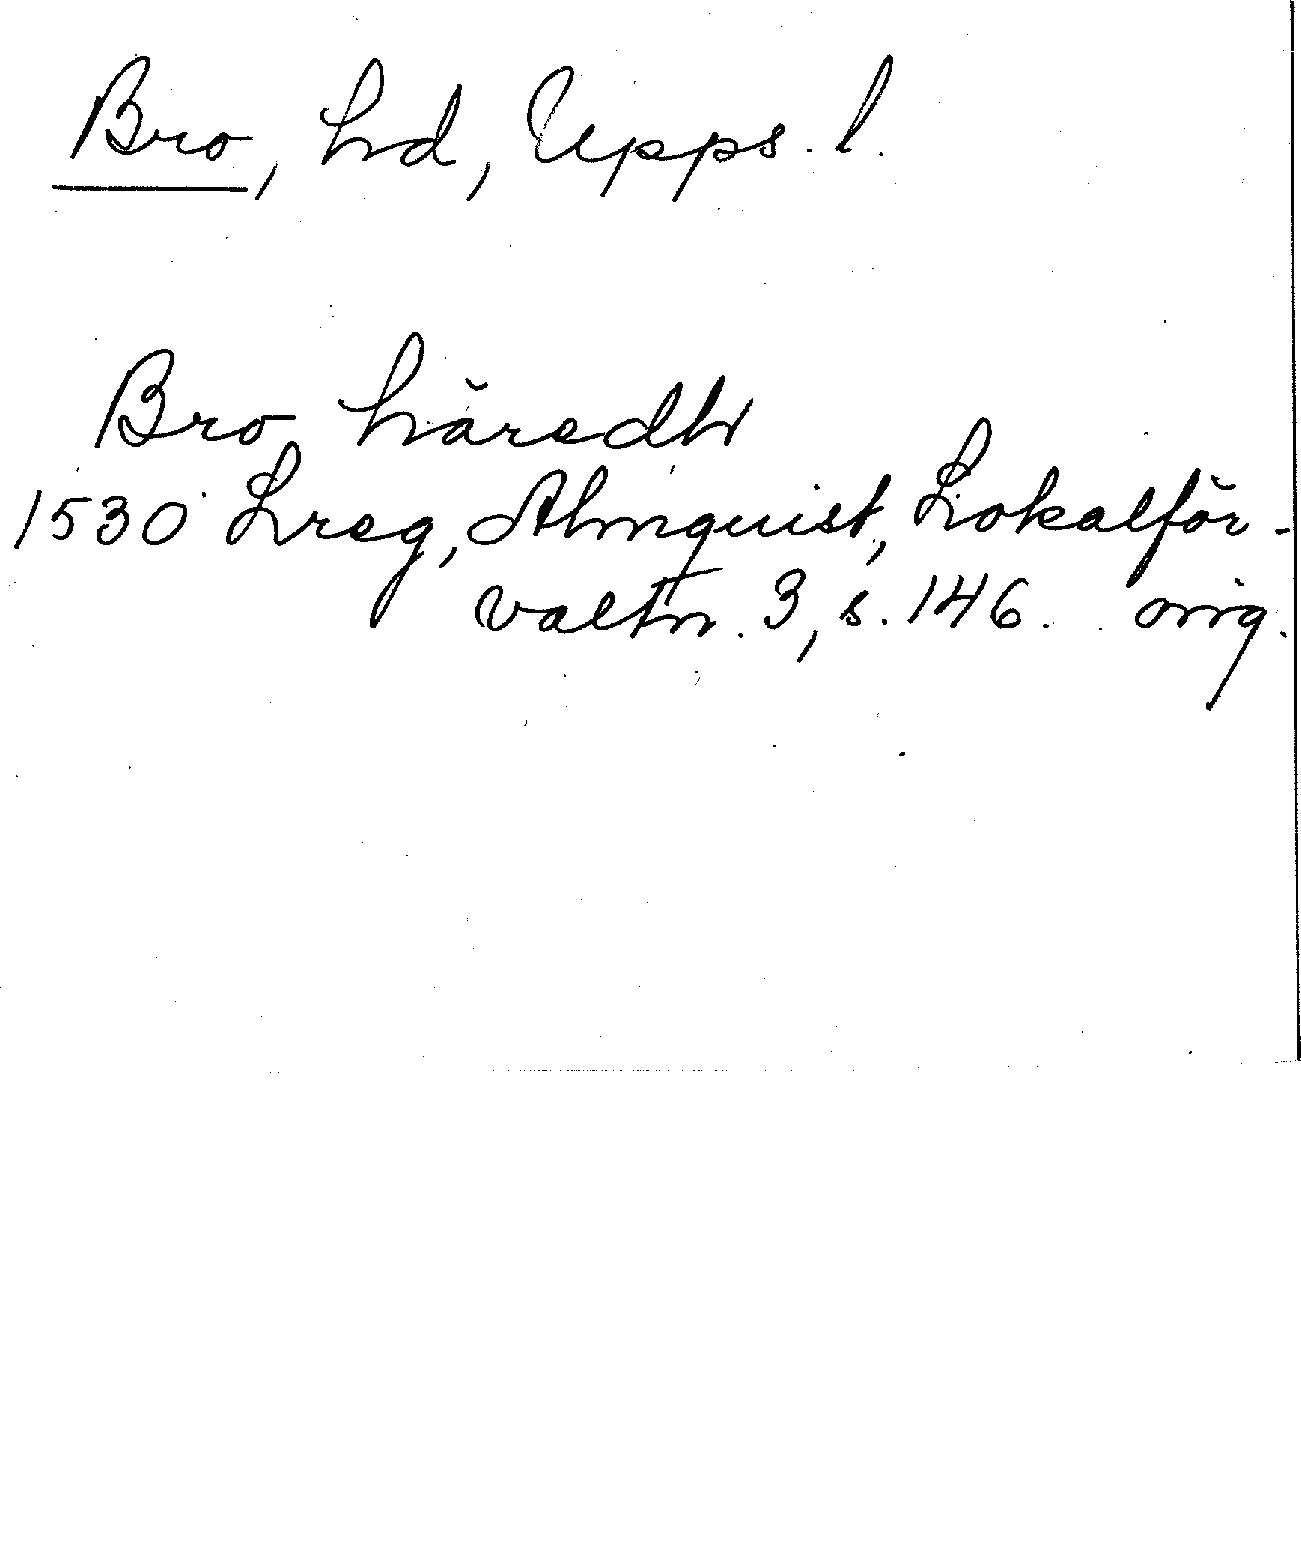 Bro, hd, Upps. l.
Bro häredh
1530 Lreg, Almquist, Lokalför-
valtn. 3, s. 146. orig.